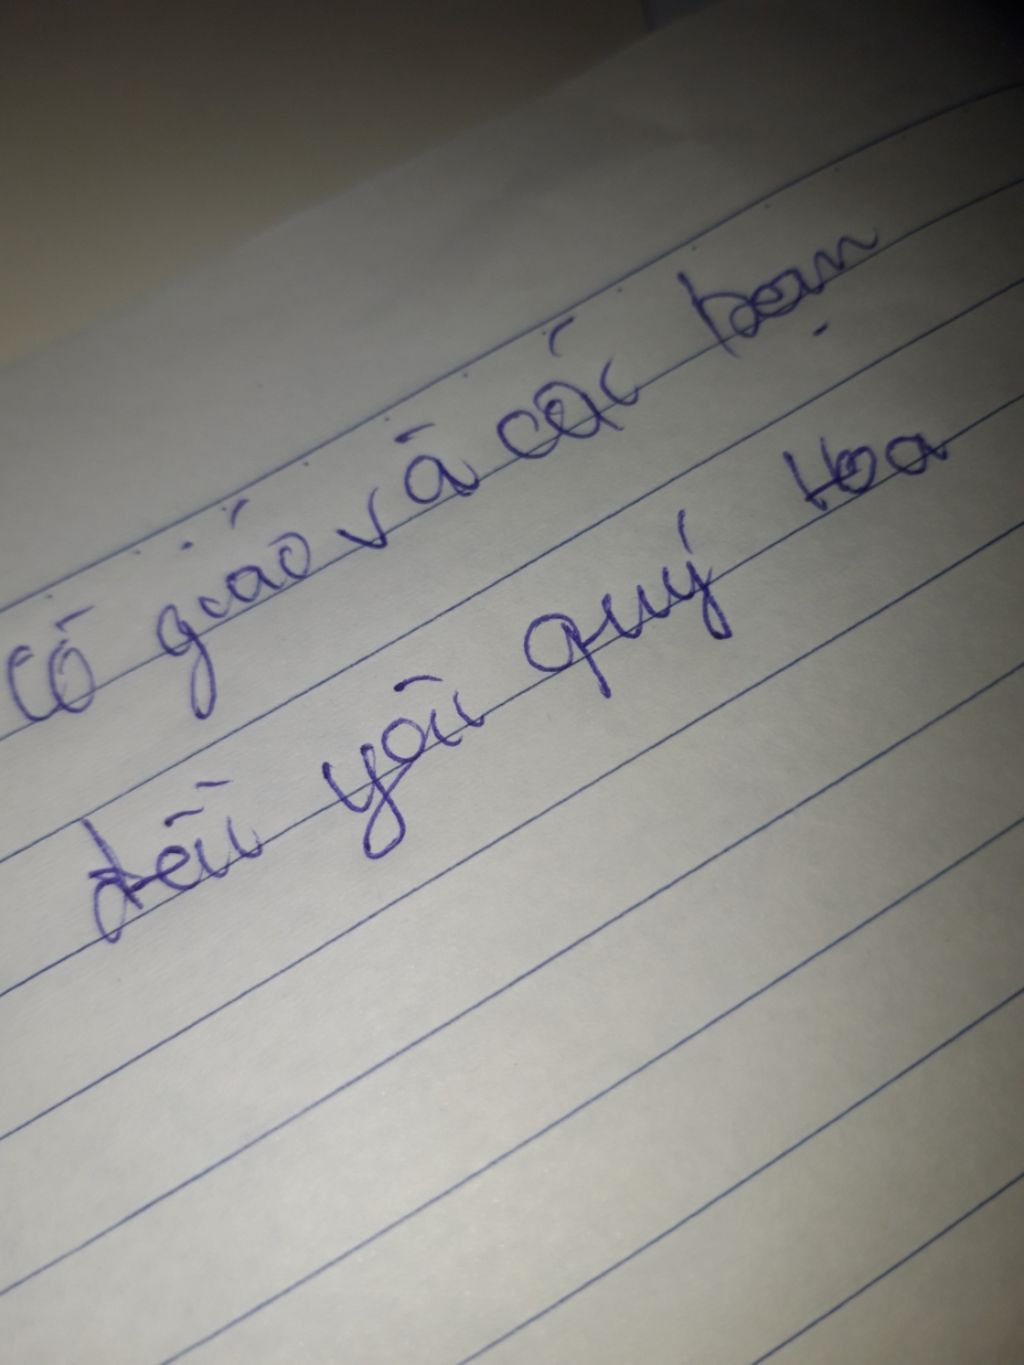 Cô giáo và các bạn
đều yêu quý Hoa